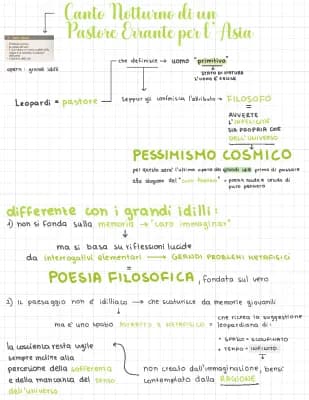 Canto Notturno di un
Pastore Errante per l'Asia
opera: grandi idilli
che definisce → uomo "primitivo"
STATO DI NATURA
L'UOMO È FELICE
Leopardi = pastore
seppur gli conferisca l'attributo → FILOSOFO
=
AVVERTE
L'INFELICITÀ
SIA PROPRIA CHE
DELL'UNIVERSO
PESSIMISMO COSMICO
per questo sarà l'ultima opera dei grandi idilli prima di passare
alla stagione del "caro pensiero" = poesia nuda e cruda di
puro pensiero
differente con i grandi idilli:
1) non si fonda sulla memoria → "caro immaginar"
ma si basa su riflessioni lucide
da interrogativi elementari → GRANDI PROBLEMI METAFISICI
=
POESIA FILOSOFICA, fondata sul vero
2) il paesaggio non è idilliaco → che scaturisce da memorie giovanili
ma è uno spazio ASTRATTO e METAFISICO =
che ricrea la suggestione
leopardiana di:
• SPAZIO = SCONFINATO
• TEMPO = INFINITO
la coscienza resta vigile
sempre incline alla
percezione della sofferenza
e della mancanza del senso
dell'universo
non creato dall'immaginazione, bensì
contemplato dalla RAGIONE